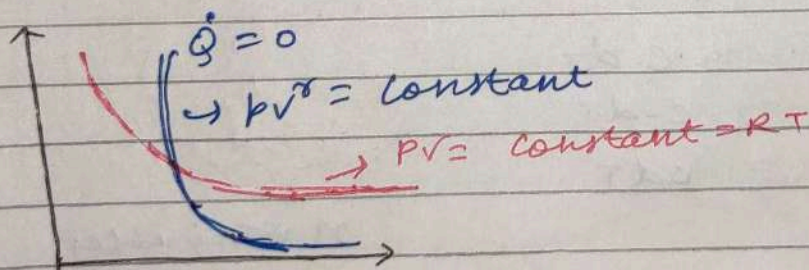 Q̇ = 0
→ pvᵞ = constant
→ PV = constant = RT